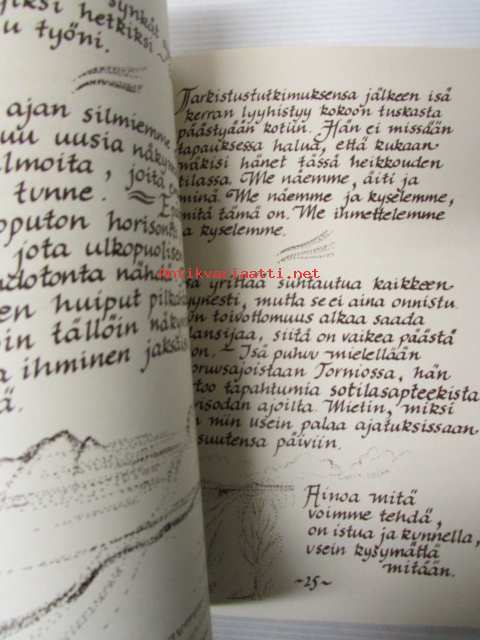 synkät
jiksi hetkiksi
u työni.
ajan silmiemme
uu uusia näkym
lmoita, joita
tunne.
oputon horison
jota ulkopuolisen
hdotonta nähdä
en huiput
oin tällöin näkym
a ihminen jaksais
ä.
Tarkistustutkimuksensa jälkeen isä
kerran lyyhistyy kokoon tuskasta
päästyään kotiin. Hän ei missään
tapauksessa halua, että kukaan
näkisi hänet tässä heikkouden
tilassa. Me näemme, äiti ja
minä. Me näemme ja kyselemme,
mitä tämä on. Me ihmettelemme
ja kyselemme.
Antikvariaatti.net
sä yrittää suhtautua kaikkeen
yynesti, mutta se ei aina onnistu.
on toivottomuus alkaa saada
ansijaa, siitä on vaikea päästä
on. Isä puhuu mielellään
oruvsajoistaan Torniossa, hän
rtoo tapahtumia sotilasapteekista
risodan ajoilta. Mietin, miksi
n niin usein palaa ajatuksissaan
suutensa päiviin.
Ainoa mitä
voimme tehdä,
on istua ja kunnella,
usein kysymättä
mitään.
~25~